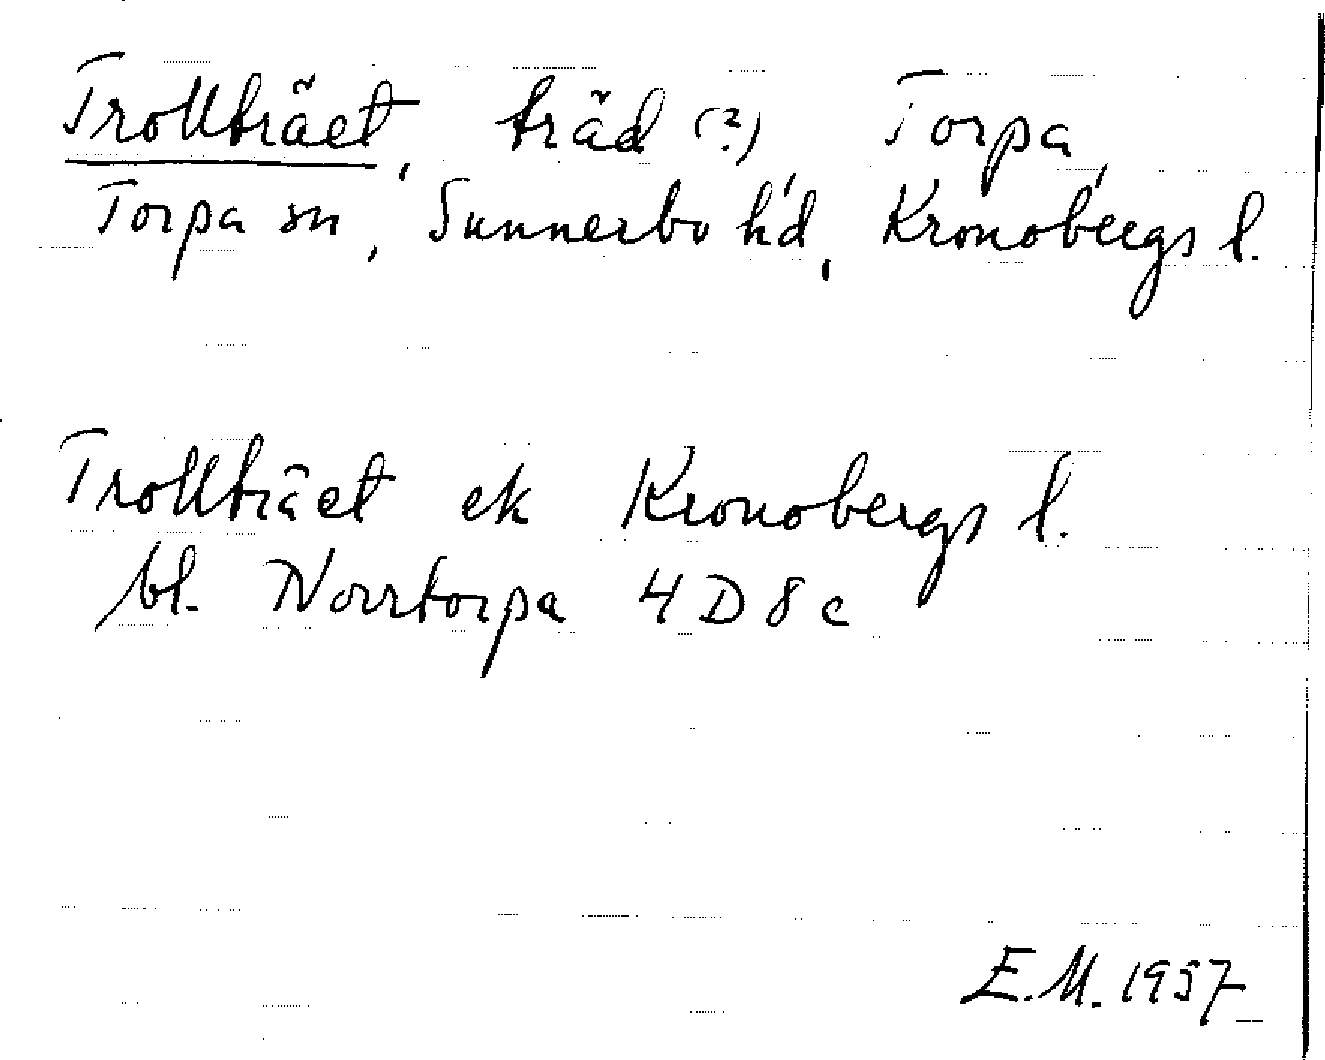 Trollträet, träd (?), Torpa,
Torpa sn, Sunnerbo h'd, Kronobergs l.
Trollträet ek Kronobergs l.
bl. Norrtorpa 4D8c
E.M. 1957